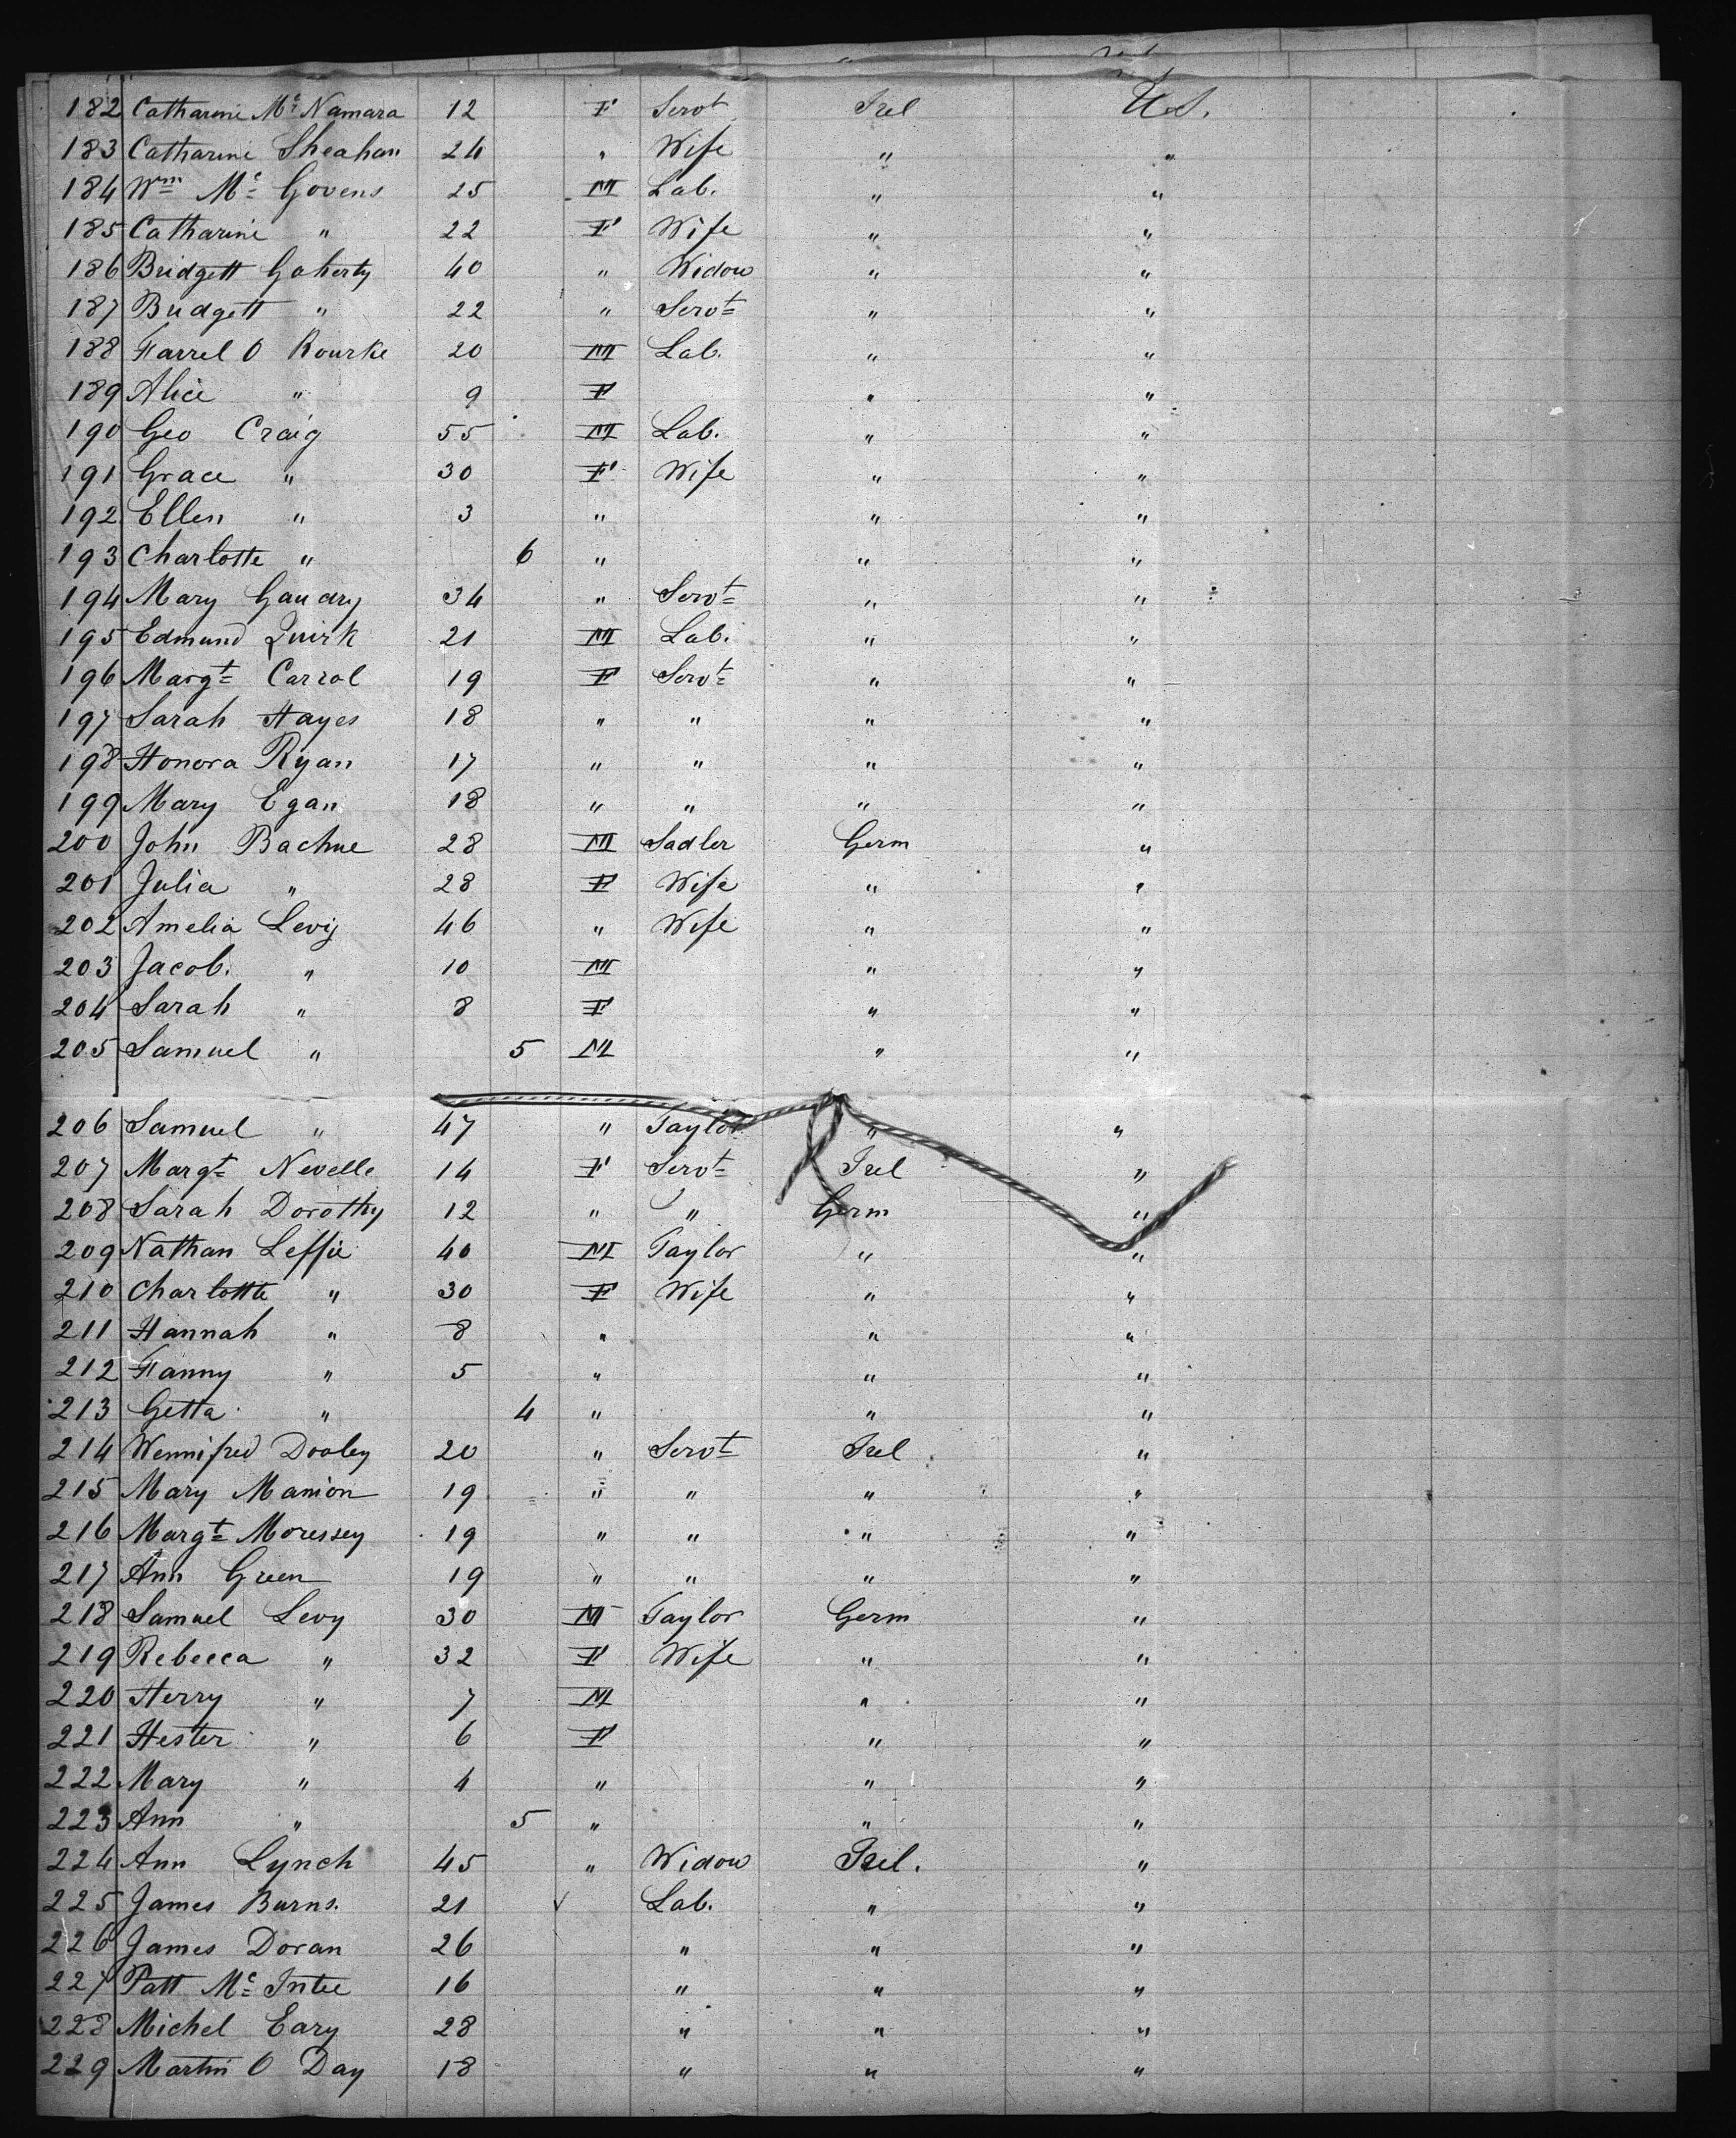 182 Catharine Mc Namara 12 F Servt Irel U.S.
183 Catharine Sheahan 24 " Wife " "
184 Wm Mc Govens 25 M Lab. " "
185 Catharine " 22 F Wife " "
186 Bridgett Goherty 40 " Widow " "
187 Bridgett " 22 " Servt " "
188 Farrel O Rourke 20 M Lab. " "
189 Alice " 9 F " "
190 Geo Craig 55 M Lab. " "
191 Grace " 30 F Wife " "
192 Ellen " 3 " " "
193 Charlotte " 6 " " "
194 Mary 34 " Servt " "
195 Edmund Quirk 21 M Lab. " "
196 Margt Carrol 19 F Servt " "
197 Sarah Hayes 18 " " " "
198 Honora Ryan 17 " " " "
199 Mary Egan 18 " " " "
200 John Bachue 28 M Sadler Germ "
201 Julia " 28 F Wife " "
202 Amelia Levy 46 " Wife " "
203 Jacob. " 10 M " "
204 Sarah " 8 F " "
205 Samuel " 5 M " "
206 Samuel " 47 " Taylor " "
207 Margt Nevelle 14 F Servt Irel "
208 Sarah Dorothy 12 " " Germ "
209 Nathan Leffie 40 M Taylor " "
210 Charlotte " 30 F Wife " "
211 Hannah " 8 " " "
212 Fanny " 5 " " "
213 Getta " 4 " " "
214 Wennifred Dooley 20 " Servt Irel "
215 Mary Manion 19 " " " "
216 Margt Moressey 19 " " " "
217 Ann Green 19 " " " "
218 Samuel Levy 30 M Taylor Germ "
219 Rebecca " 32 F Wife " "
220 Herry " 7 M " "
221 Hester " 6 F " "
222 Mary " 4 " " "
223 Ann " 5 " " "
224 Ann Lynch 45 " Widow Irel. "
225 James Burns. 21 Lab. " "
226 James Doran 26 " " "
227 Patt Mc Intee 16 " " "
228 Michel Eary 28 " " "
229 Martin O Day 18 " " "